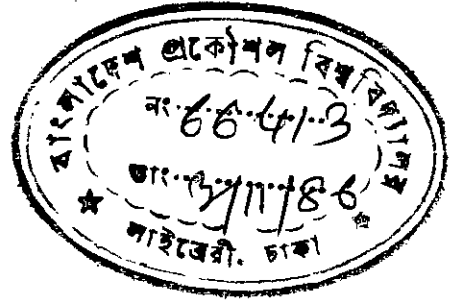 বাংলাদেশ প্রকৌশল বিশ্ববিদ্যালয়
নং 66413
তাং 3/11/86
লাইব্রেরী. ঢাকা